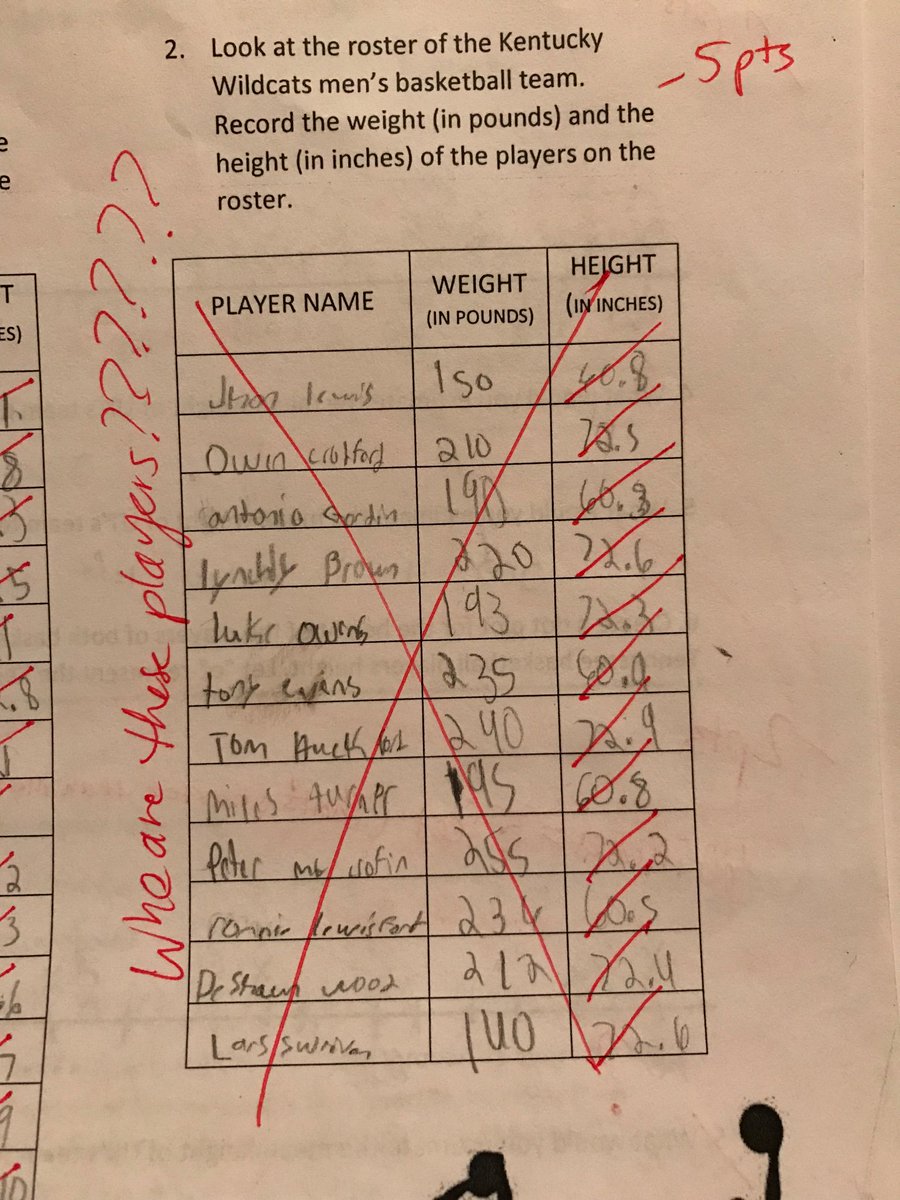 2. Look at the roster of the Kentucky
Wildcats men's basketball team.
Record the weight (in pounds) and the
height (in inches) of the players on the
roster.
-5pts
Who are these players???????
PLAYER NAME WEIGHT (IN POUNDS) HEIGHT (IN INCHES)
lewis 150 60.8
Owin 210 72.5
antonio 190 60.3
Brown 220 72.6
luke owens 193 72.3
tony evans 235 60.9
Tom 240 72.9
Miles turner 195 60.8
Peter 255 72.2
234 60.5
DeShawn wood 212 72.4
Lars 140 72.6
e
e
T
ES)
8
3
5
.8
2
3
6
7
9
10